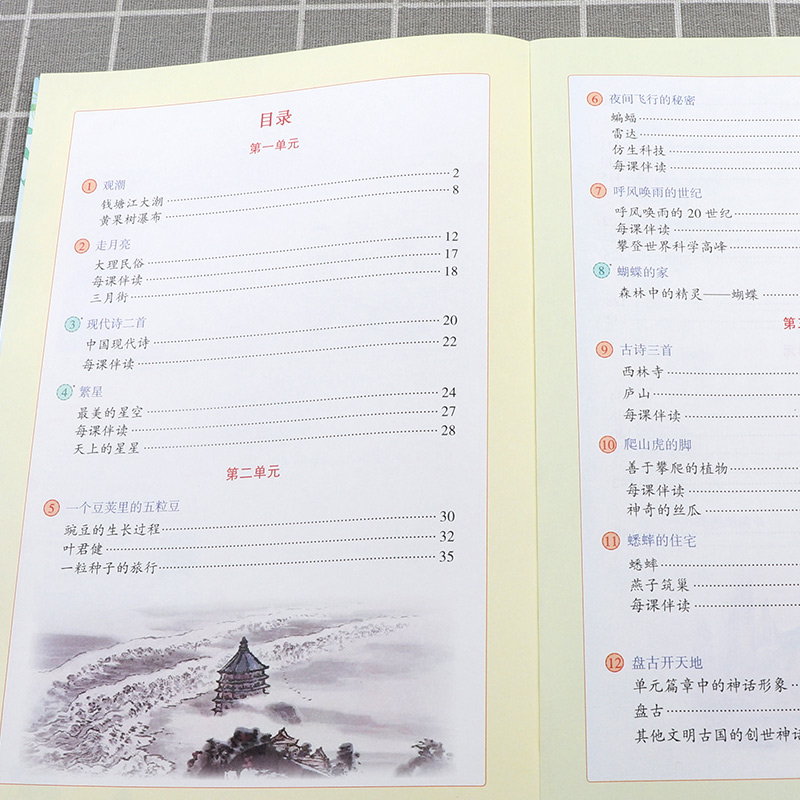 目录
第一单元
1 观潮
钱塘江大潮 2
黄果树瀑布 8
2 走月亮
大理民俗 12
每课伴读 17
三月街 18
3 现代诗二首
中国现代诗 20
每课伴读 22
4 繁星
最美的星空 24
每课伴读 27
天上的星星 28
第二单元
5 一个豆荚里的五粒豆
豌豆的生长过程 30
叶君健 32
一粒种子的旅行 35
6 夜间飞行的秘密
蝙蝠
雷达
仿生科技
每课伴读
7 呼风唤雨的世纪
呼风唤雨的 20 世纪
每课伴读
攀登世界科学高峰
8 蝴蝶的家
森林中的精灵——蝴蝶
第
9 古诗三首
西林寺
庐山
每课伴读
10 爬山虎的脚
善于攀爬的植物
每课伴读
神奇的丝瓜
11 蟋蟀的住宅
蟋蟀
燕子筑巢
每课伴读
12 盘古开天地
单元篇章中的神话形象
盘古
其他文明古国的创世神话